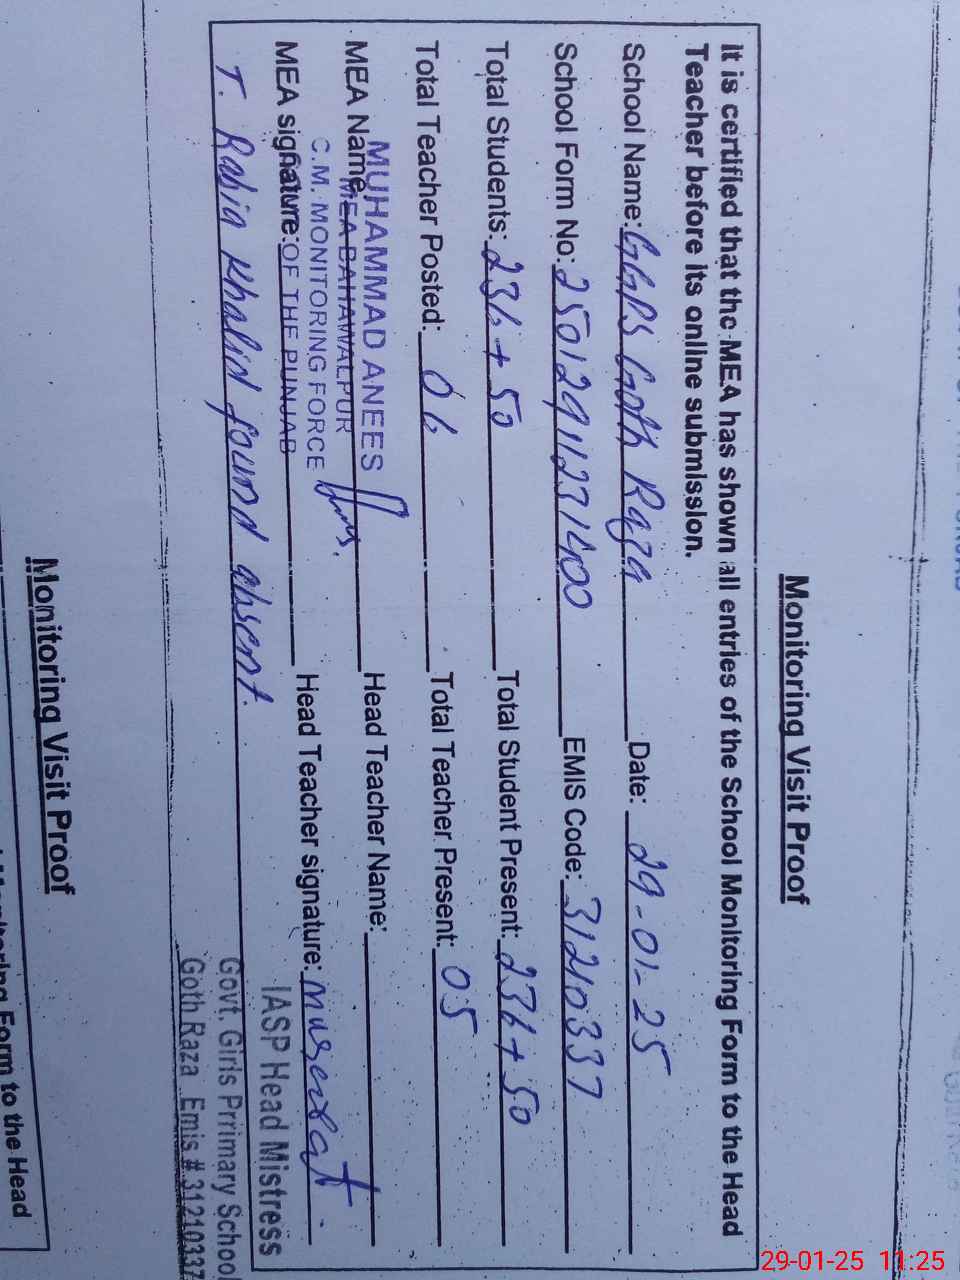 Monitoring Visit Proof
It is certified that the MEA has shown all entries of the School Monitoring Form to the Head
Teacher before its online submission.
School Name: GGPS Goth Raza Date: 29-01-25
School Form No: 250129112371400 EMIS Code: 31210337
Total Students: 236+50 Total Student Present: 236+50
Total Teacher Posted: 06 Total Teacher Present: 05
MUHAMMAD ANEES
MEA Name: MEA BAHAWALPUR Head Teacher Name:
C.M. MONITORING FORCE
MEA signature: OF THE PUNJAB Head Teacher signature: Muserrat
IASP Head Mistress
T. Rabia Khalid found absent.
Govt. Girls Prrimary School
Goth Raza Emis # 31210337
Monitoring Visit Proof
Form to the Head
29-01-25 11:25